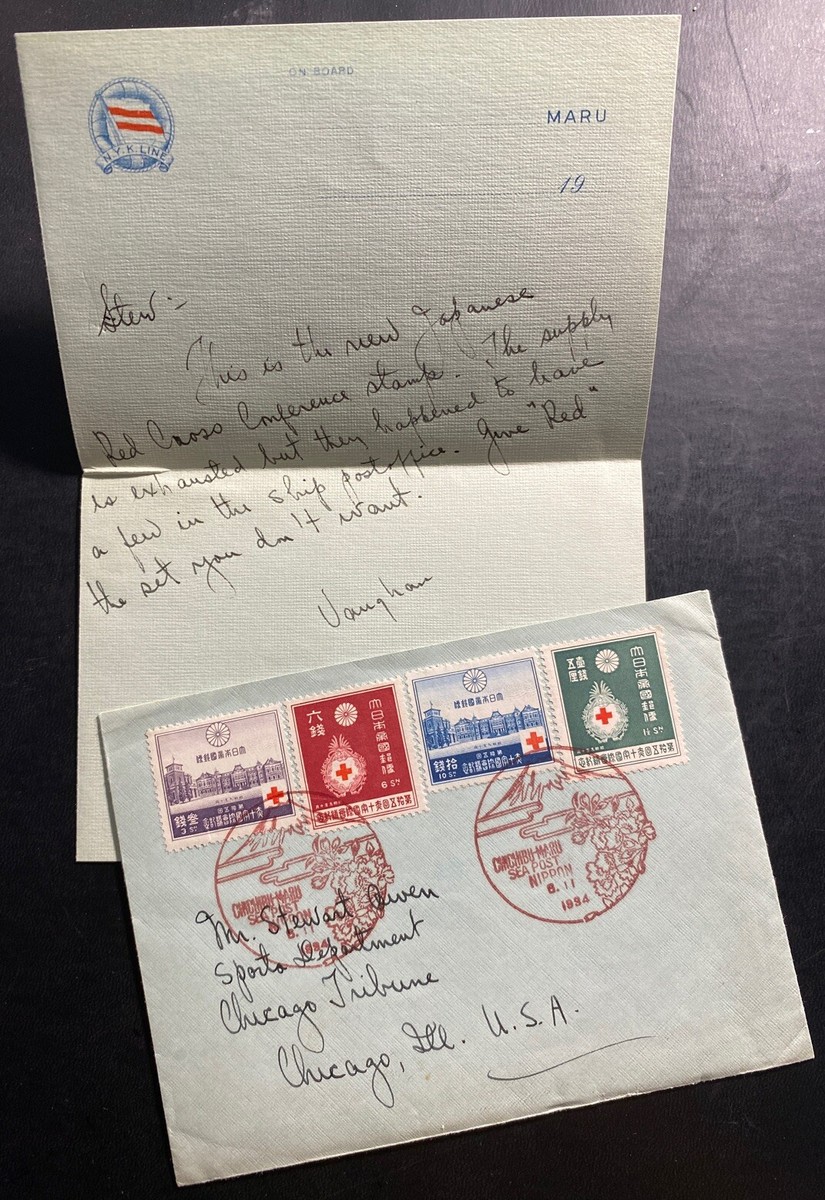 ON BOARD
N.Y.K. LINE
MARU
19
Stew:-
This is the new Japanese
Red Cross Conference stamp. The supply
is exhausted but they happened to have
a few in the ship postoffice. Give "Red"
the set you don't want.
Vaughan
大日本帝國郵便
叁錢
3 Sn
六錢
大日本帝國郵便
6 Sn
第拾五回赤十字國際會議記念
大日本帝國郵便
拾錢
10 Sn
壹錢
五厘
大日本帝國郵便
1½ Sn
第拾五回赤十字國際會議記念
CHICHIBU-MARU
SEA POST
NIPPON
8. 11
1934
CHICHIBU-MARU
SEA POST
NIPPON
8. 11
1934
Mr. Stewart Owen
Sports Department
Chicago Tribune
Chicago, Ill. U.S.A.